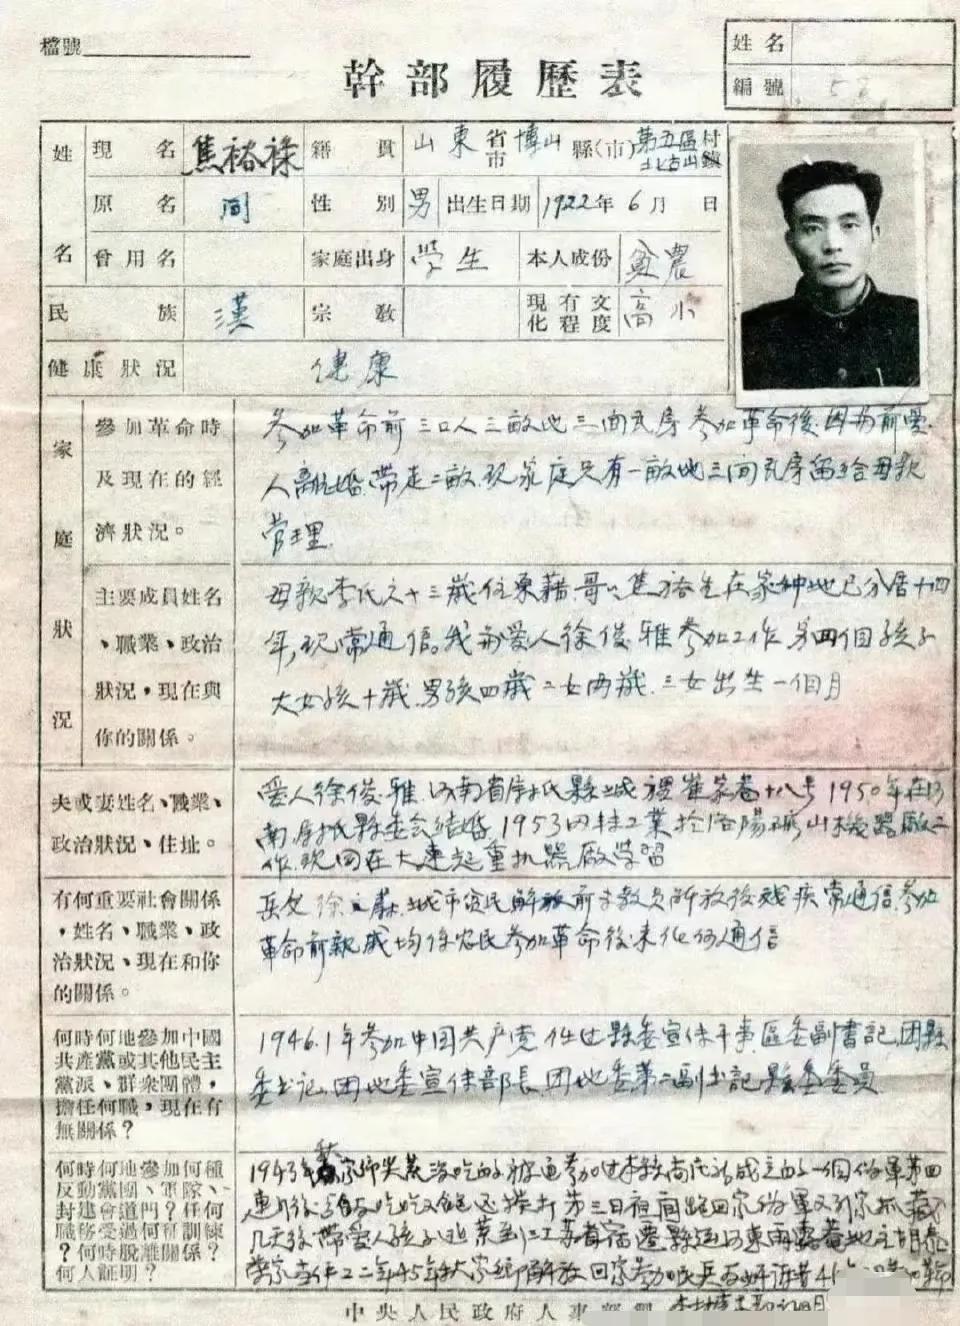 檔號
姓名
編號 5
幹部履歷表
姓名 現名 焦裕祿 籍貫 山東省市 博山縣(市) 第五區 北古山村鎮
原名 同 性別 男 出生日期 1922年6月 日
曾用名 家庭出身 學生 本人成份 貧農
民族 漢 宗教 現有文化程度 高小
健康狀況 健康
家庭狀況
參加革命時及現在的經濟狀況。
参加革命前三口人三畝地三间瓦房参加革命後.因为前愛
人離婚.带走二畝.现家庭只有一畝地三间瓦房留给母親
管理
主要成員姓名、職業、政治狀況,現在與你的關係。
母親李氏六十三歲住原藉.哥哥焦裕生在家种地已分居十四
年,现常通信。我和愛人徐俊雅参加工作.另四個孩子
大女孩十歲.男孩四歲二女两歲.三女出生一個月
夫或妻姓名、職業、政治狀況、住址。
愛人徐俊雅.河南省尉氏縣城裡 十八号 1950年在河
南尉氏縣委会结婚.1953 工業於洛陽矿山機器廠工
作.现同在大連起重机器廠学習
有何重要社會關係,姓名、職業、政治狀況、現在和你的關係。
岳父徐 城市贫民解放前 教员解放後残疾常通信.参加
革命前親戚均係农民参加革命後未任何通信
何時何地參加中國共產黨或其他民主黨派、群衆團體,擔任何職,現在有無關係?
1946.1年参加中国共产党 任过縣委宣传干事.區委副書記.团縣
委书记.团地委宣传部長.团地委第二副书記.縣委委员
何時何地參加何種反動黨團、軍隊、封建會道門?任何職務受過何種訓練?何時脫離關係?何人証明?
1943年 家鄉 吃的 参加过 成立的一個伪軍第四
連 第三日夜间跑回家伪軍又到家抓.藏
几天後.带愛人孩子逃 到江苏省宿遷縣 河東 地主胡泰
榮家 二年45年秋家鄉解放回家参加民兵
中央人民政府人事部